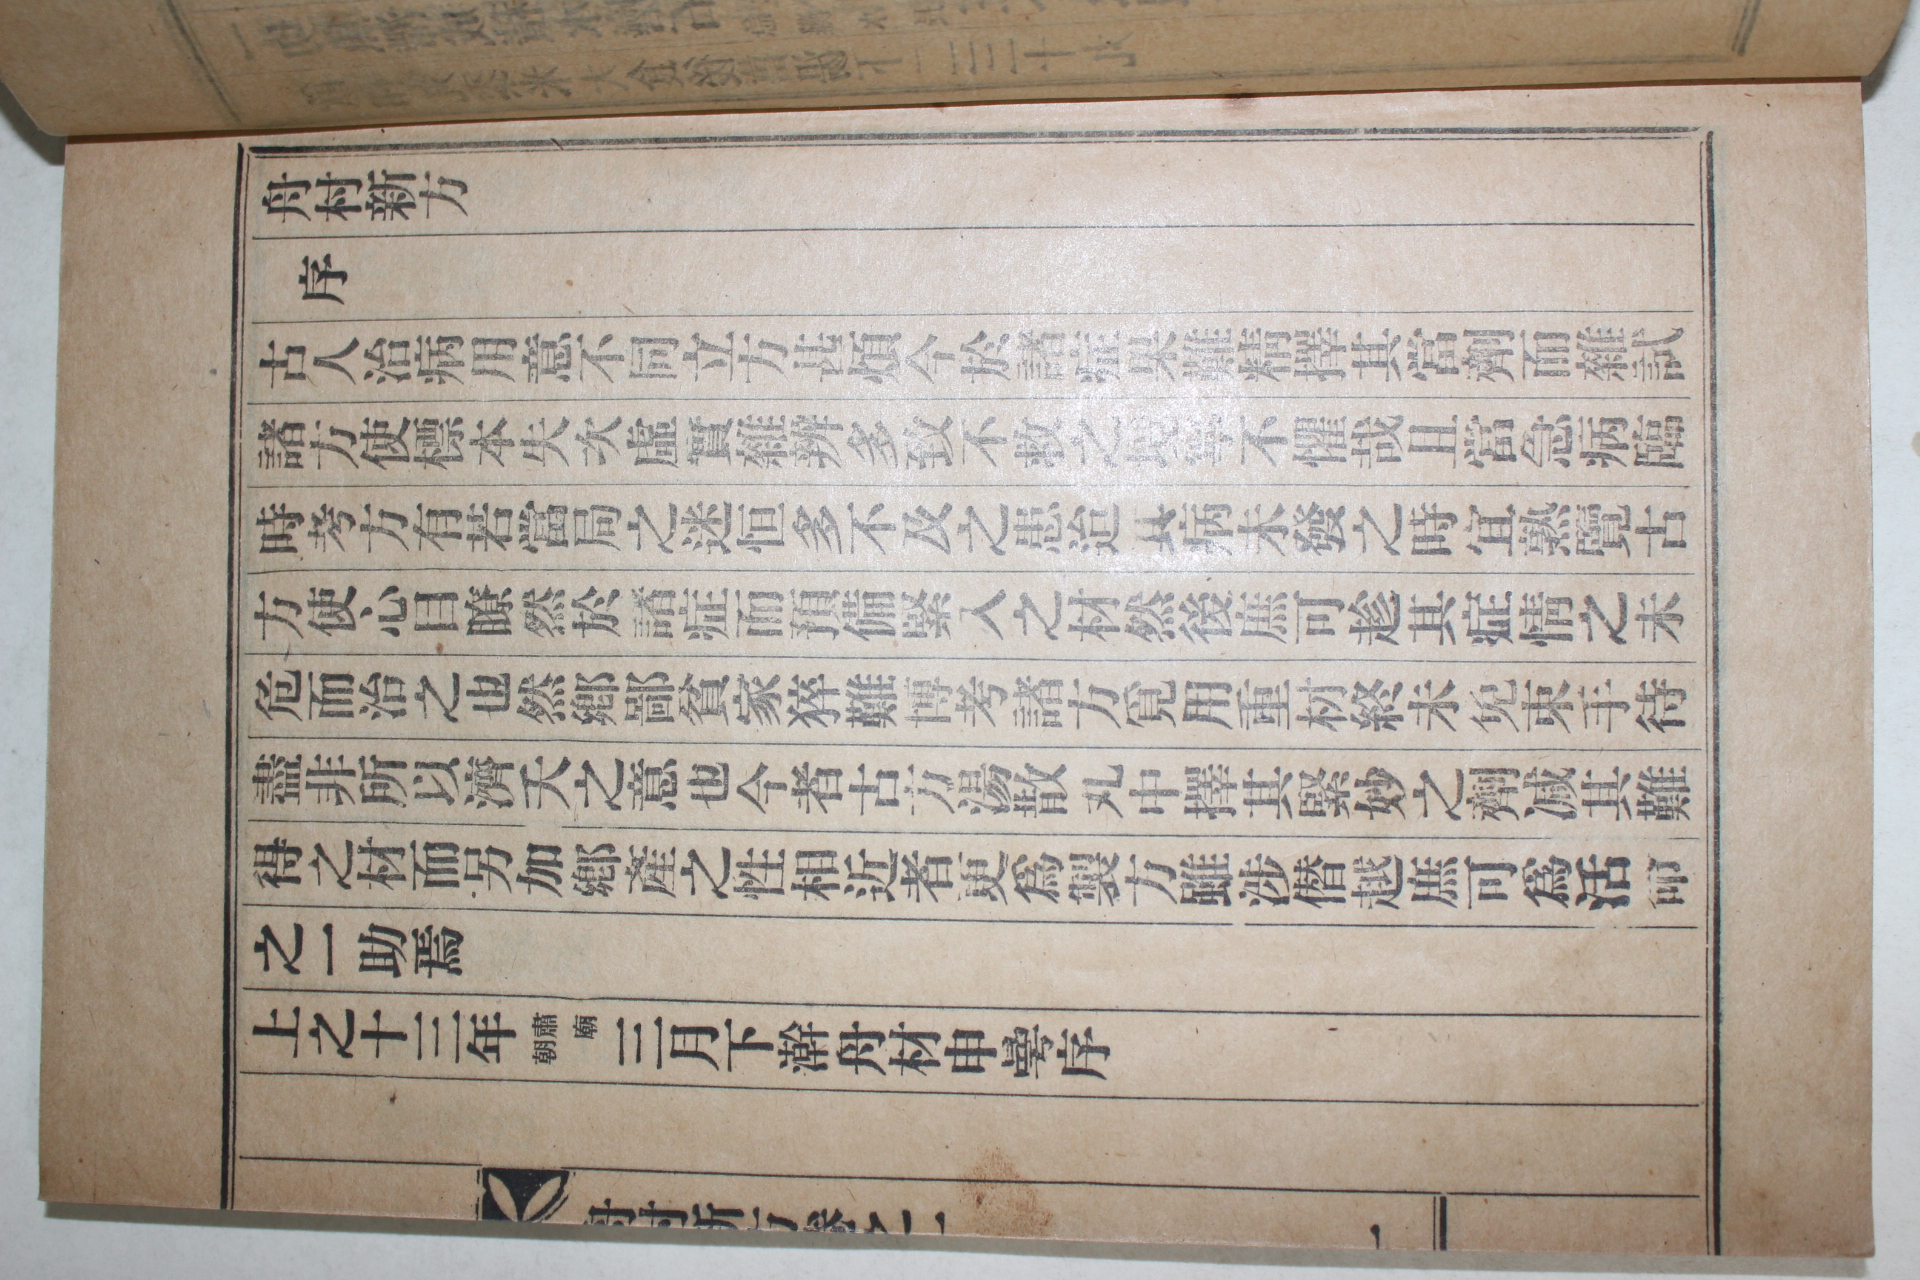 舟村新方
序
古人治病用意不同立方甚煩今於諸症果難精擇其當劑而雜試
諸方使標本失次虛實雜辨多致不救之境寧不懼哉且當急病臨
時考方有若當局之迷恒多不及之患迨其病未發之時宜熟覽古
方使心目瞭然於諸症而預備緊入之材然後庶可趁其症情之未
危而治之也然鄕鄙貧家猝難博考諸方覓用重材終未免束手待
盡非所以濟夭之意也今者古方湯散丸中擇其緊妙之劑減其難
得之材而另加鄕產之性相近者更爲製方雖涉僭越庶可爲活命
之一助焉
上之十三年肅廟朝三月下澣舟材申曼序
舟村新方卷之一
一